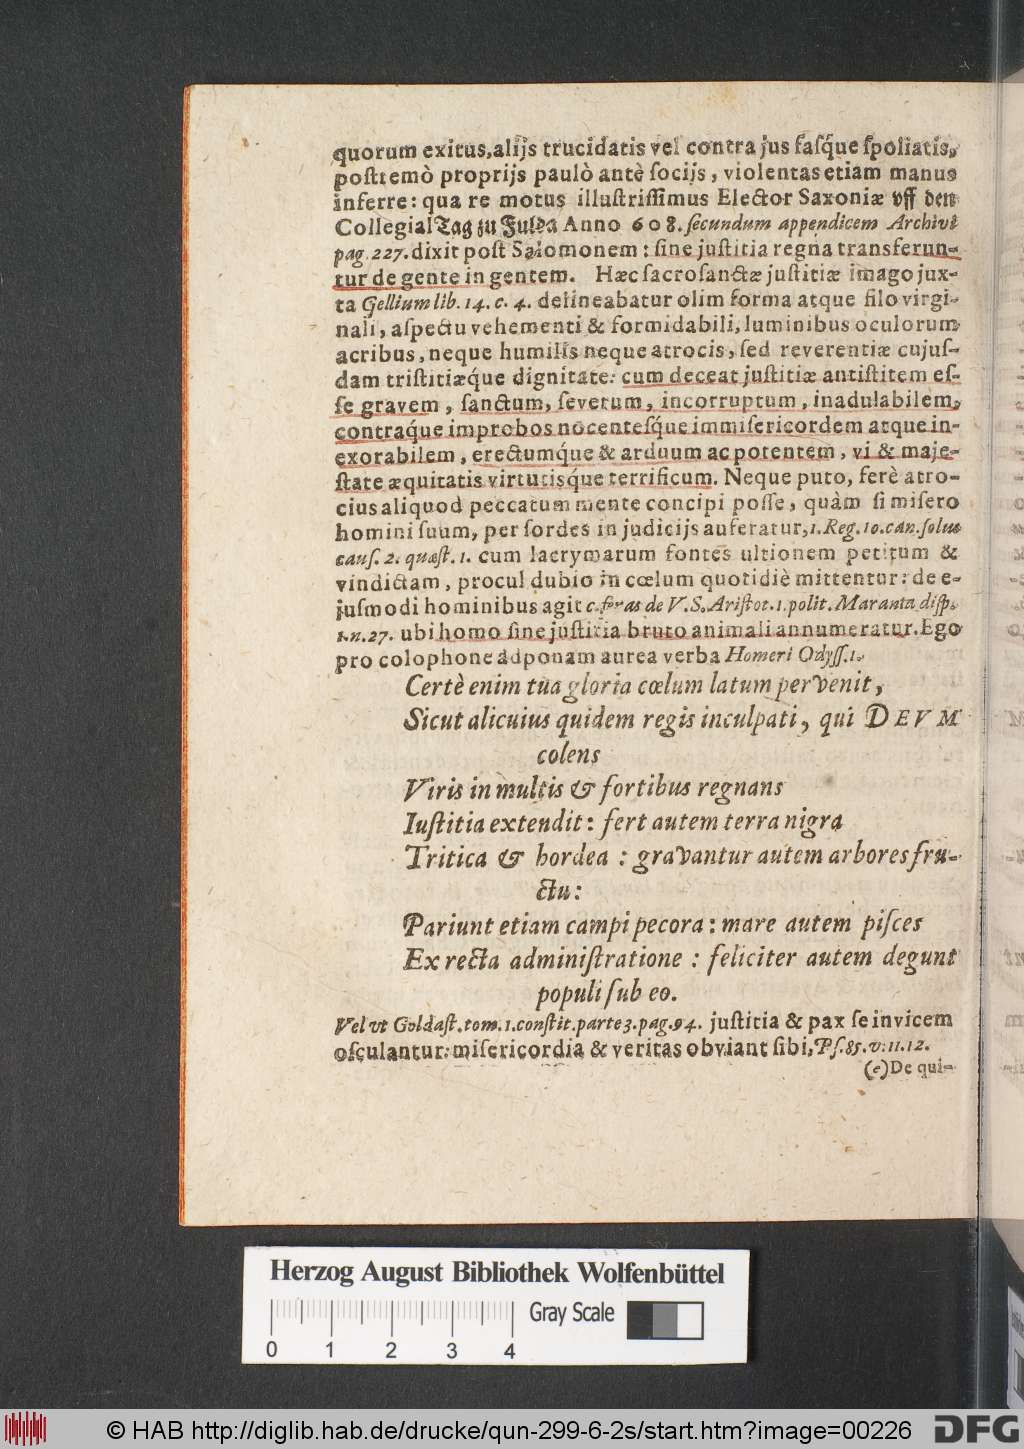 quorum exitus, alijs trucidatis vel contra jus fasq́ue ſpoliatis,
poſtremò proprijs paulò antè ſocijs, violentas etiam manus
inferre: qua re motus illuſtriſſimus Elector Saxoniæ vff den
Collegial Tag zu Fulda Anno 608. ſecundum appendicem Archivi
pag. 227. dixit poſt Salomonem: ſine juſtitia regna transferun-
tur de gente in gentem. Hæc ſacroſanctæ juſtitiæ imago jux-
ta Gellium lib. 14. c. 4. delineabatur olim forma atque filo virgi-
nali, aſpectu vehementi & formidabili, luminibus oculorum
acribus, neque humilis neque atrocis, ſed reverentiæ cujuſ-
dam triſtitiæq́ue dignitate: cum deceat juſtitiæ antiſtitem eſ-
ſe gravem, ſanctum, ſeverum, incorruptum, inadulabilem,
contraq́ue improbos nocenteſq́ue immiſericordem atque in-
exorabilem, erectumq́ue & arduum ac potentem, vi & maje-
ſtate æquitatis virtutisq́ue terrificum. Neque puto, ferè atro-
cius aliquod peccatum mente concipi poſſe, quàm ſi miſero
homini ſuum, per ſordes in judicijs auferatur, 1. Reg. 10. can. ſolus
cauſ. 2. quæſt. 1. cum lacrymarum fontes ultionem petitum &
vindictam, procul dubio in cœlum quotidiè mittentur: de e-
juſmodi hominibus agit c. foras de V. S. Ariſtot. 1. polit. Maranta diſp.
1. n. 27. ubi homo ſine juſtitia bruto animali annumeratur. Ego
pro colophone adponam aurea verba Homeri Odyſſ. 1.
Certè enim tua gloria cœlum latum pervenit,
Sicut alicuius quidem regis inculpati, qui DEVM
colens
Viris in multis & fortibus regnans
Iuſtitia extendit: fert autem terra nigra
Tritica & hordea: gravantur autem arbores fru-
ctu:
Pariunt etiam campi pecora: mare autem piſces
Ex recta adminiſtratione: feliciter autem degunt
populi ſub eo.
Vel vt Goldaſt. tom. 1. conſtit. parte 3. pag. 94. juſtitia & pax ſe invicem
oſculantur: miſericordia & veritas obviant ſibi, Pſ. 85. v. 11. 12.
(e) De qui-
Herzog August Bibliothek Wolfenbüttel
Gray Scale
0 1 2 3 4
© HAB http://diglib.hab.de/drucke/qun-299-6-2s/start.htm?image=00226 DFG